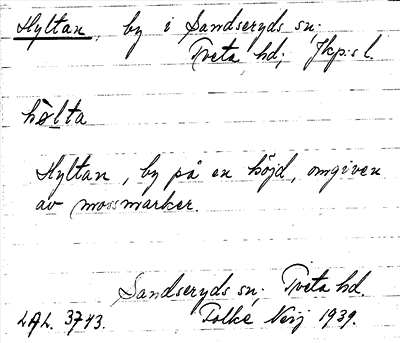 Hyltan, by i Sandseryds sn;
Tveta hd; Jkp:s l.
hølta
Hyltan, by på en höjd, omgiven
av mossmarker.
Sandseryds sn; Tveta hd.
LAL. 3743. Folke 1939.